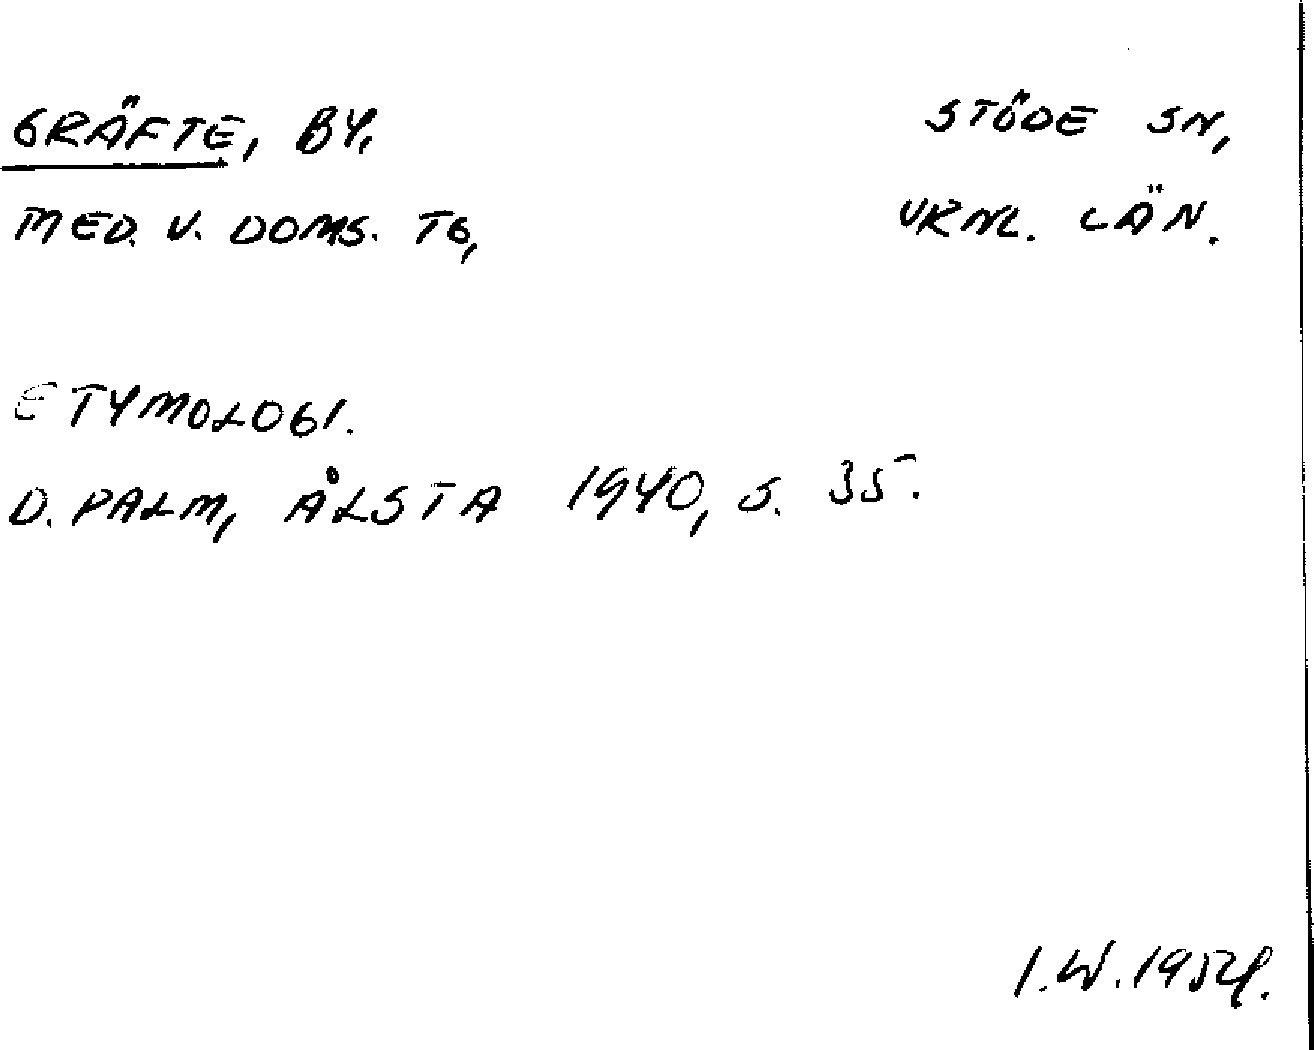 GRÄFTE, BY, STÖDE SN,
MED. V. DOMS. TG, VRNL. LÄN.
ETYMOLOGI.
D. PALM, ÅLSTA 1940, S. 35.
I.W. 1954.